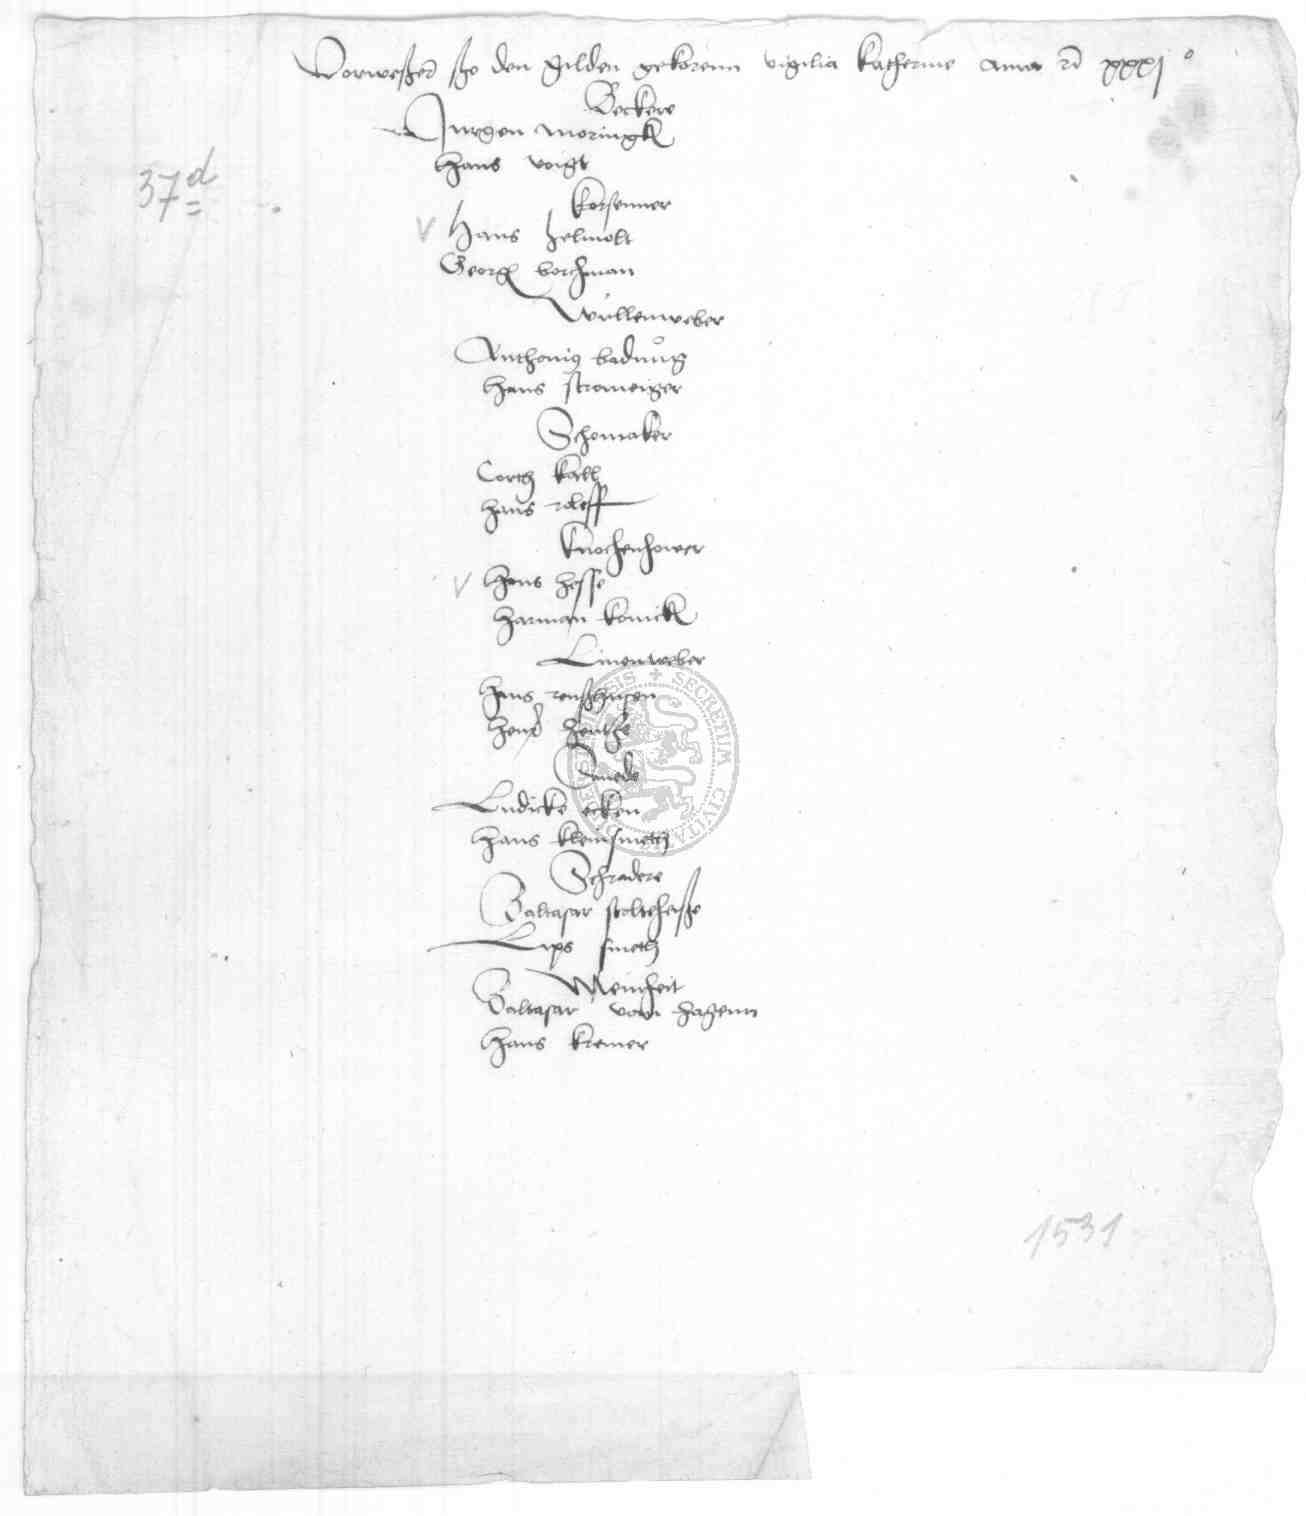 Vorweßer ßo den Gilden gekorenn vigilia Katherine anno xxxj°
Beckere
Jurgen moringk
Hans voigt
37d
Korsenner
V Hans helmolt
Georg borchman
Wullenweber
Anthonig badung
Hans stromeiger
Schomaker
Corth kall
Hans roleff
Knochenhower
V Hans hesse
Harman konick
Linenweber
Hans renßhusen
Henr hentze
Smede
Ludicke ecken
Hans kleinsmeth
Schradere
Baltasar stolteheße
Lips smeth
Meinheit
Baltasar vom hagenn
Hans kremer
1531
SECRETUM CIVITATIS